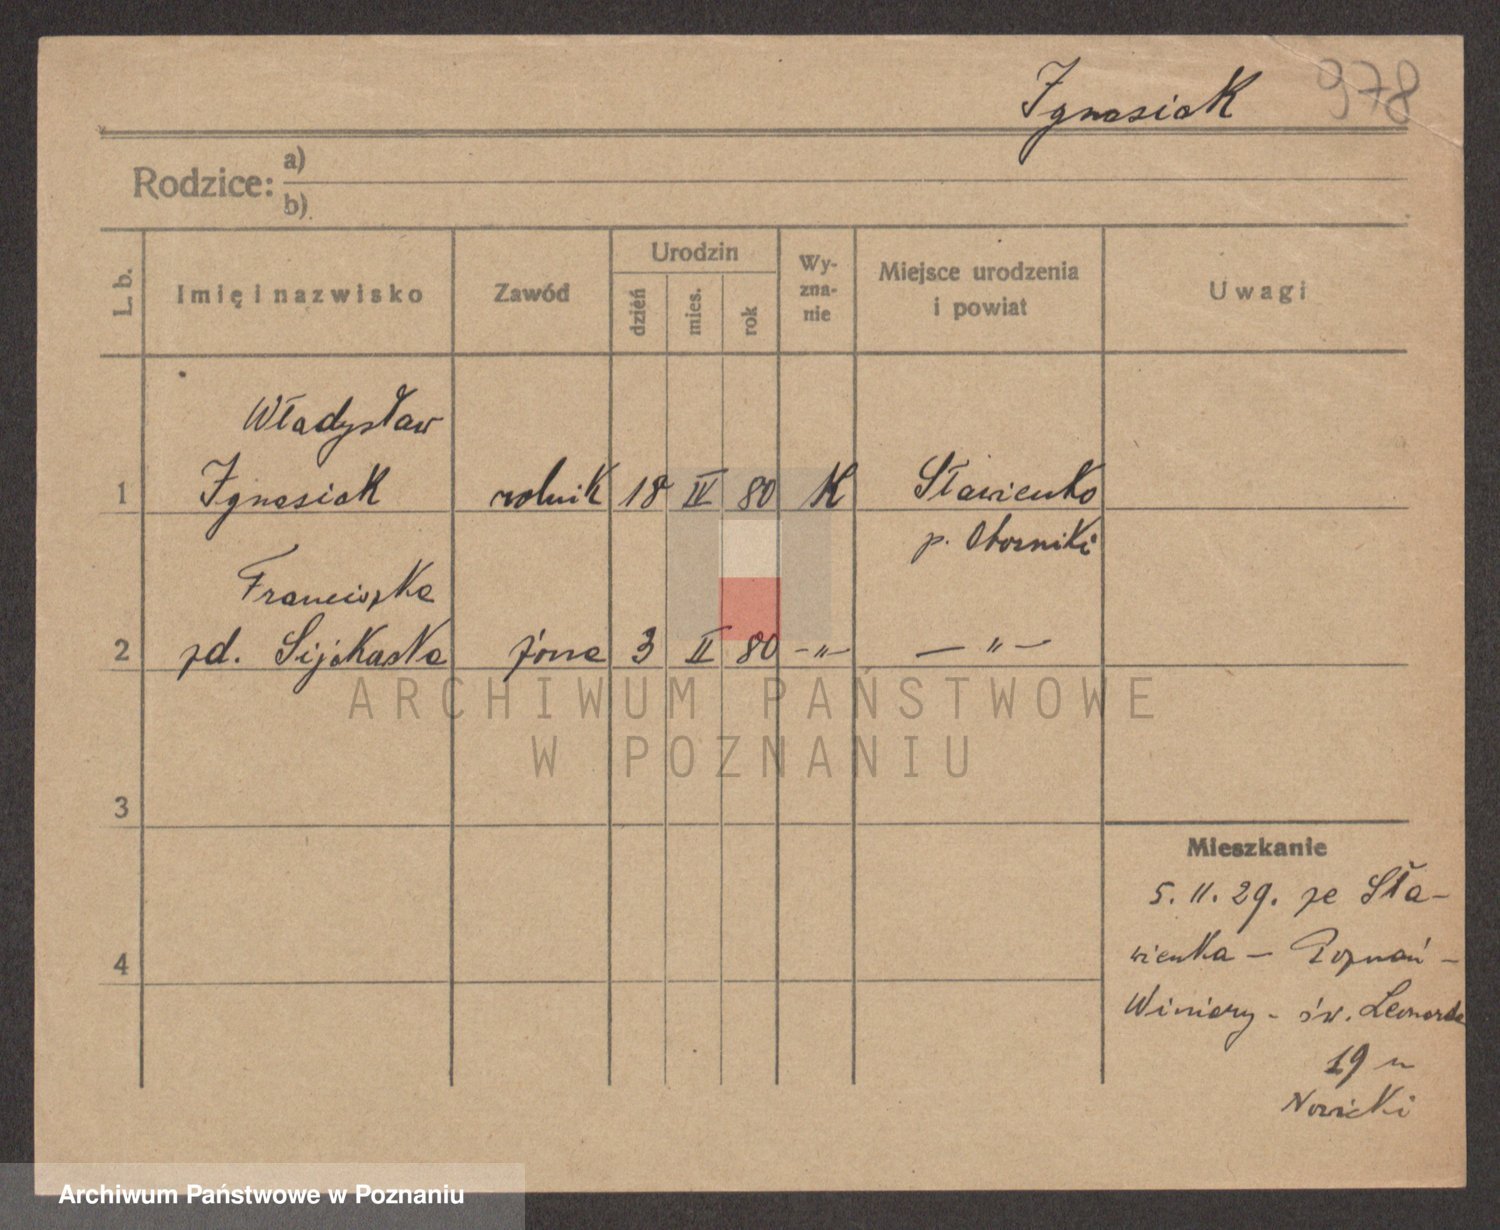 Ignasiak 978
Rodzice: a)
b)
L. b.
Imię i nazwisko
Zawód
Urodzin
dzień
mies.
rok
Wy-
zna-
nie
Miejsce urodzenia
i powiat
Uwagi
Władysław
1 Ignasiak rolnik 18 IV 80 K Sławienko
p. Oborniki
Franciszka
2 zd. żona 3 II 80 -„- -„-
3
4
Mieszkanie
5. 11. 29. ze Sła-
wienka - Poznań -
Winiary - św. Leonarda
19 u
Nowicki
ARCHIWUM PAŃSTWOWE
W POZNANIU
Archiwum Państwowe w Poznaniu